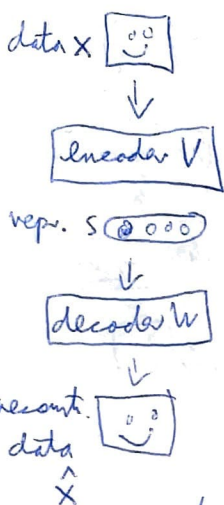 data x
encoder V
repr. S
decoder W
reconstr.
data
x̂